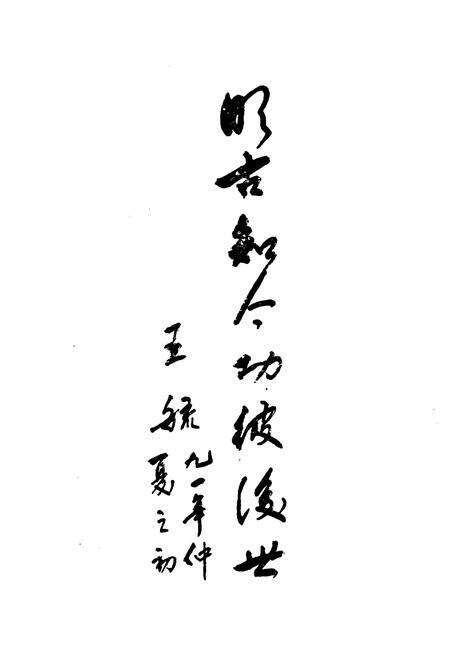 明古知今功被後世
王毓
九一年仲
夏之初